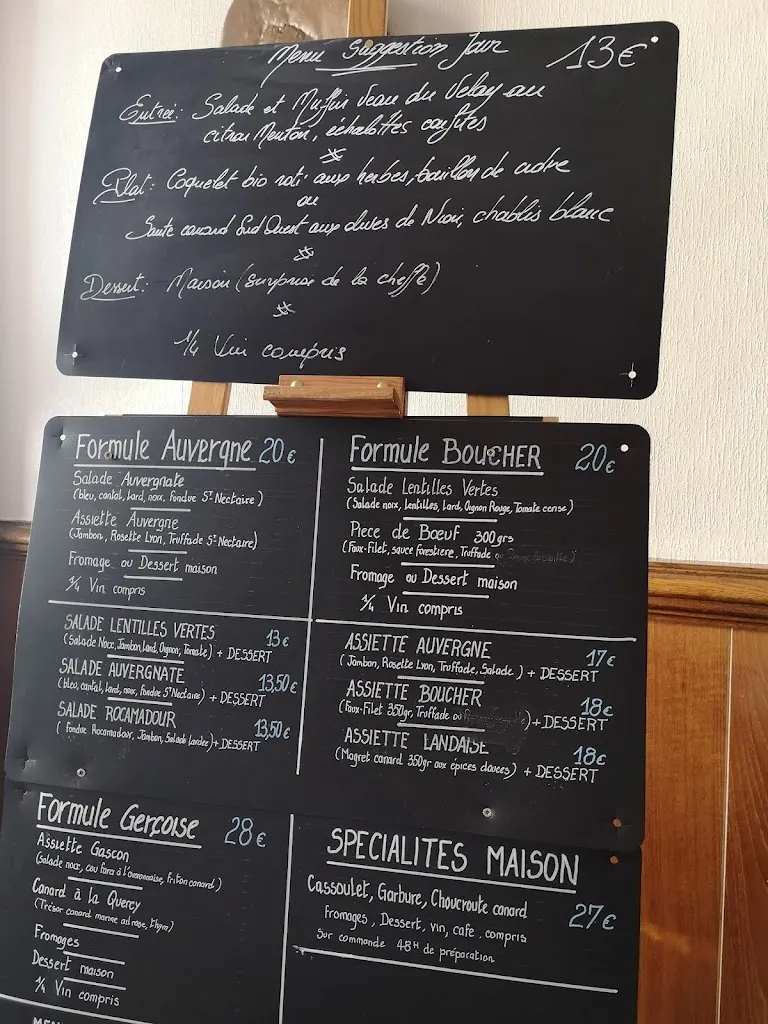 Menu Suggestion Jour 13€
Entrée: Salade et Muffin Veau du Velay au
citron Menton, échalottes confites
Plat: Coquelet bio roti aux herbes, bouillon de cidre
ou
Sauté canard Sud Ouest aux olives de Nion, chablis blanc
Dessert: Maison (surprise de la cheffe)
1/4 Vin compris
Formule Auvergne 20€
Salade Auvergnate
(bleu, cantal, lard, noix, fondue St Nectaire)
Assiette Auvergne
(Jambon, Rosette Lyon, Truffade St Nectaire)
Fromage ou Dessert maison
1/4 Vin compris
Formule BOUCHER 20€
Salade Lentilles Vertes
(Salade noix, lentilles, Lard, Oignon Rouge, Tomate cerise)
Piece de Bœuf 300grs
(Faux-Filet, sauce forestiere, Truffade ou
Fromage ou Dessert maison
1/4 Vin compris
SALADE LENTILLES VERTES 13€
(Salade Noix, Jambon, Lard, Oignon, Tomate) + DESSERT
SALADE AUVERGNATE 13,50€
(bleu, cantal, lard, noix, fondue St Nectaire) + DESSERT
SALADE ROCAMADOUR 13,50€
(fondue Rocamadour, Jambon, Salade Lardee) + DESSERT
ASSIETTE AUVERGNE 17€
(Jambon, Rosette Lyon, Truffade, Salade) + DESSERT
ASSIETTE BOUCHER 18€
(Faux-Filet 350gr, Truffade ou ) + DESSERT
ASSIETTE LANDAISE 18€
(Magret canard 350gr aux épices douces) + DESSERT
Formule Gerçoise 28€
Assiette Gascon
(Salade noix, cou farci à l'armagnac, friton canard)
Canard à la Quercy
(Trésor canard marine ail rose, thym)
Fromages
Dessert maison
1/4 Vin compris
SPECIALITES MAISON
Cassoulet, Garbure, Choucroute canard 27€
Fromages, Dessert, vin, cafe, compris
Sur commande 48H de préparation